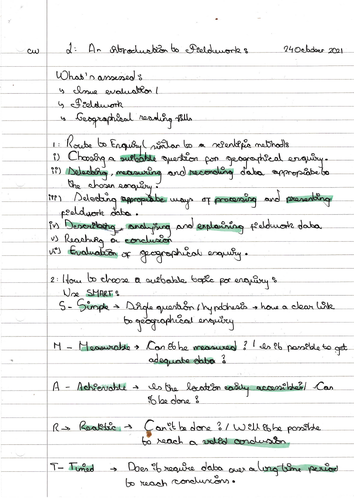 CW L: An introduction to Fieldwork: 24 October 2021
What's assessed:
↳ Issue evaluation /
↳ Fieldwork
↳ Geographical reading skills
1: Route to Enquiry/ similar to a scientific method:
i) Choosing a suitable question for geographical enquiry.
ii) Selecting, measuring and recording data appropriate to
the chosen enquiry.
iii) Selecting appropriate ways of processing and presenting
fieldwork data.
iv) Describing, analysing and explaining fieldwork data
v) Reaching a conclusion
vi) Evaluation of geographical enquiry.
2: How to choose a suitable topic for enquiry:
Use SMART:
S - Simple → Single question / hypothesis → have a clear link
to geographical enquiry
M - Measurable → Can it be measured? / Is it possible to get
adequate data?
A - Achievable → Is the location easily accessible/ Can
it be done?
R → Realistic → Can it be done? / Will it be possible
to reach a valid conclusion
T - Timed → Does it require data over a long time period
to reach conclusions.